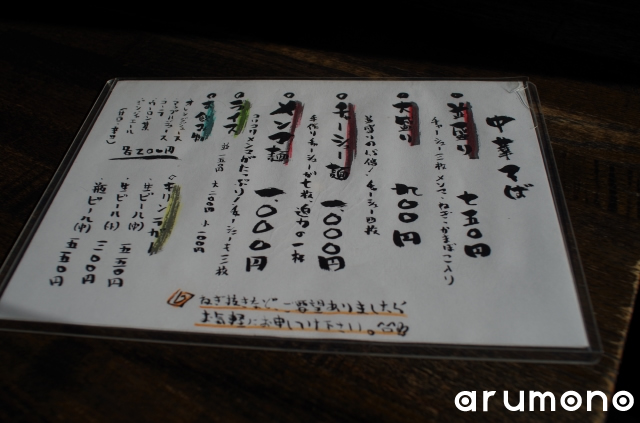 中華そば
並盛り 七五〇円
チャーシュー二枚、メンマ、ねぎ、かまぼこ入り
大盛り 九〇〇円
チャーシュー四枚
チャーシュー麺 一、〇〇〇円
手作りチャーシューが七枚、迫力の一杯
メンマ麺 一、〇〇〇円
コリコリメンマがたっぷり!チャーシューも二枚
ライス
小一〇〇円
ソフトドリンク
オレンジジュース
アップルジュース
コーラ
ウーロン茶
ジンジャエール
各200円
キリンラガー
生ビール(中) 五五〇円
生ビール(小) 三〇〇円
瓶ビール(中) 五五〇円
ねぎ抜きなど、ご要望ありましたら
お気軽にお申しつけ下さい。
arumono